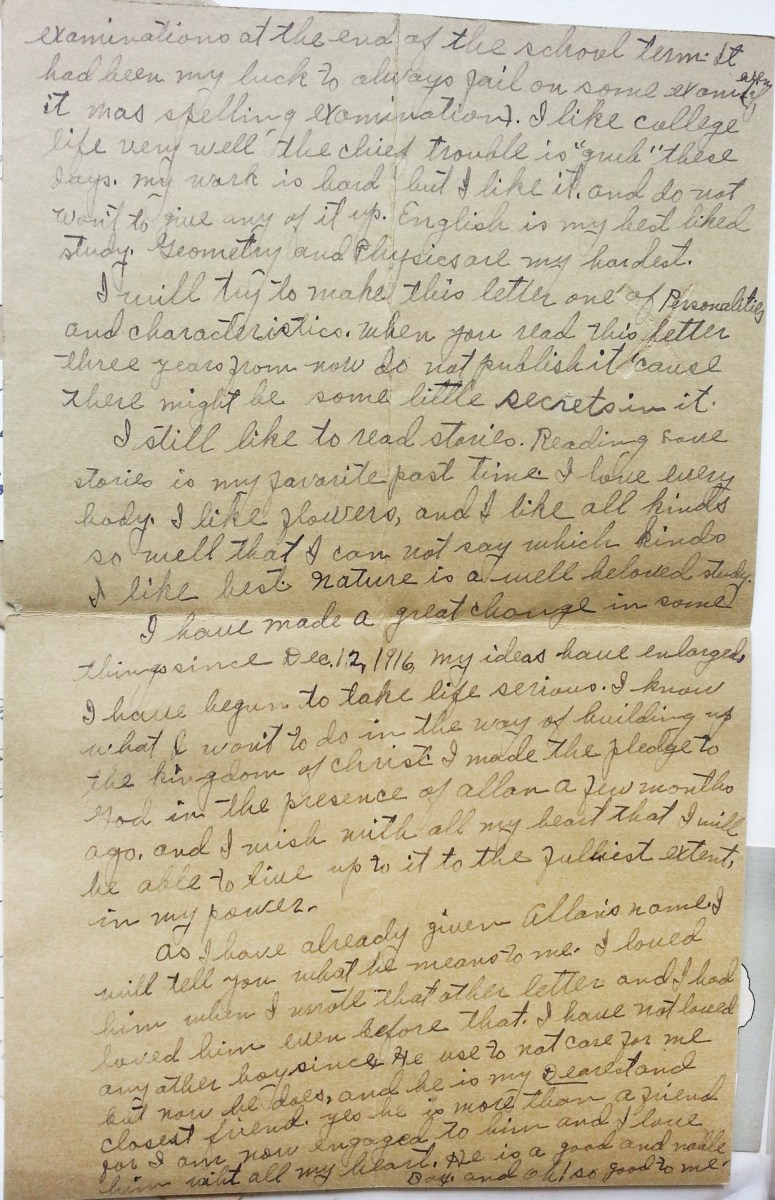 examinations at the end of the school term. It
had been my luck to always fail on some exam
it was spelling examination). I like college
life very well the chief trouble is "grub" these
days. my work is hard but I like it. and do not
won't to give any of it up. English is my best liked
study. Geometry and Physics are my hardest.
I will try to make this letter one of Personalities
and characteristics. when you read this letter
three years from now do not publish it 'cause
there might be some little secrets in it.
I still like to read stories. Reading love
stories is my favorite past time. I love every
body. I like flowers, and I like all kinds
so well that I can not say which kinds
I like best. Nature is a well beloved study.
I have made a great change in some
things since Dec. 12, 1916, my ideas have enlarged,
I have begun to take life serious. I know
what I won't to do in the way of building up
the kingdom of christ I made the pledge to
God in the presence of allan a few months
ago. and I wish with all my heart that I will
be able to live up to it to the fulliest extent,
in my power.
As I have already given Allan's name I
will tell you what he means to me. I loved
him when I wrote that other letter and I had
loved him even before that. I have not loved
any other boy since. He use to not care for me
but now he does, and he is my Dearest and
closest friend. yes he is more than a friend
for I am now engaged to him and I love
him with all my heart. He is a good and noble
Boy. and oh! so good to me.